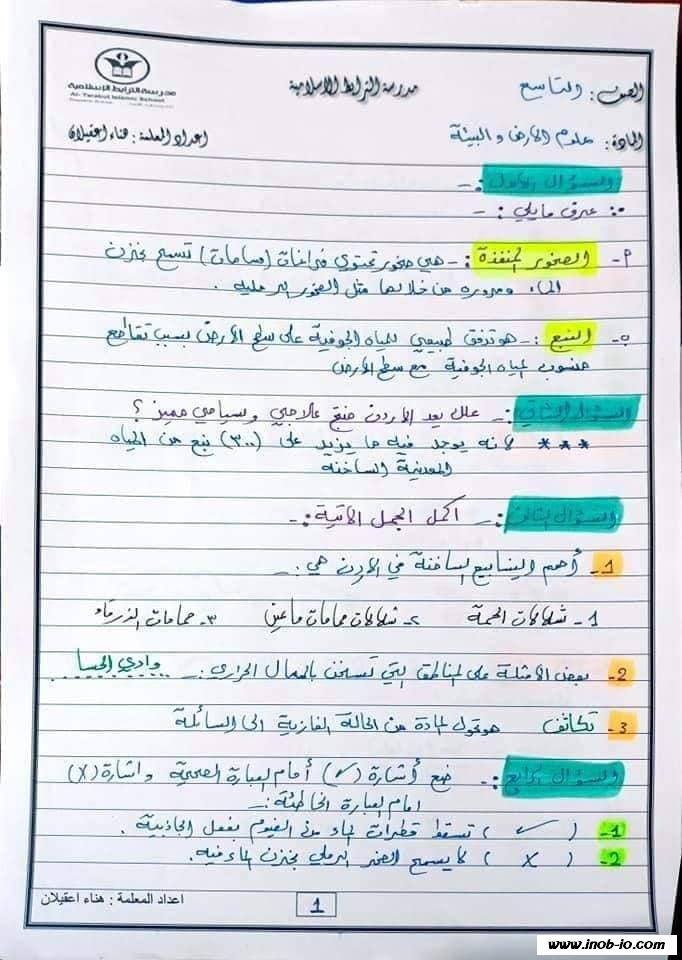 مدرسة الترابط الإسلامية
Al-Tarabut Islamic School
مدرسة الترابط الاسلامية
الصف : التاسع
المادة : علوم الارض والبيئة
اعداد المعلمة : هناء اعقيلان
السؤال الاول :-
عرف مايلي :-
أ- الصخور المنفذة :- هي صخور تحتوي فراغات (مسامات) تسمح بخزن
الماء ومروره من خلالها مثل الصخور الرملية .
ب- النبع :- هو تدفق طبيعي للمياه الجوفية على سطح الأرض بسبب تقاطع
منسوب المياه الجوفية مع سطح الأرض
السؤال الثاني :- علل يعد الأردن منتجع علاجي وسياحي مميز ؟
*** لانه يوجد فيه ما يزيد على (٣٠٠) نبع من المياه
المعدنية الساخنه
السؤال الثالث :- اكمل الجمل الاتية :-
1- أهم الينابيع الساخنة في الاردن هي :-
١- شلالات الحمة ٢- شلالات حمامات ماعين ٣- حمامات الزرقاء
2- بعض الأمثلة على المناطق التي تسخن بالممال الحراري :- وادي الحسا
3- تكاثف هو تحول المادة من الحالة الغازية الى السائلة
السؤال الرابع :- ضع أشارة (✓) أمام العبارة الصحيحة واشارة (X)
امام العبارة الخاطئة :-
1- ( ✓ ) تسقط قطرات الماء من الغيوم بفعل الجاذبية .
2- ( X ) لا يسمح الصخر الرملي بخزن الماء فيه .
اعداد المعلمة : هناء اعقيلان
1
www.inob-jo.com